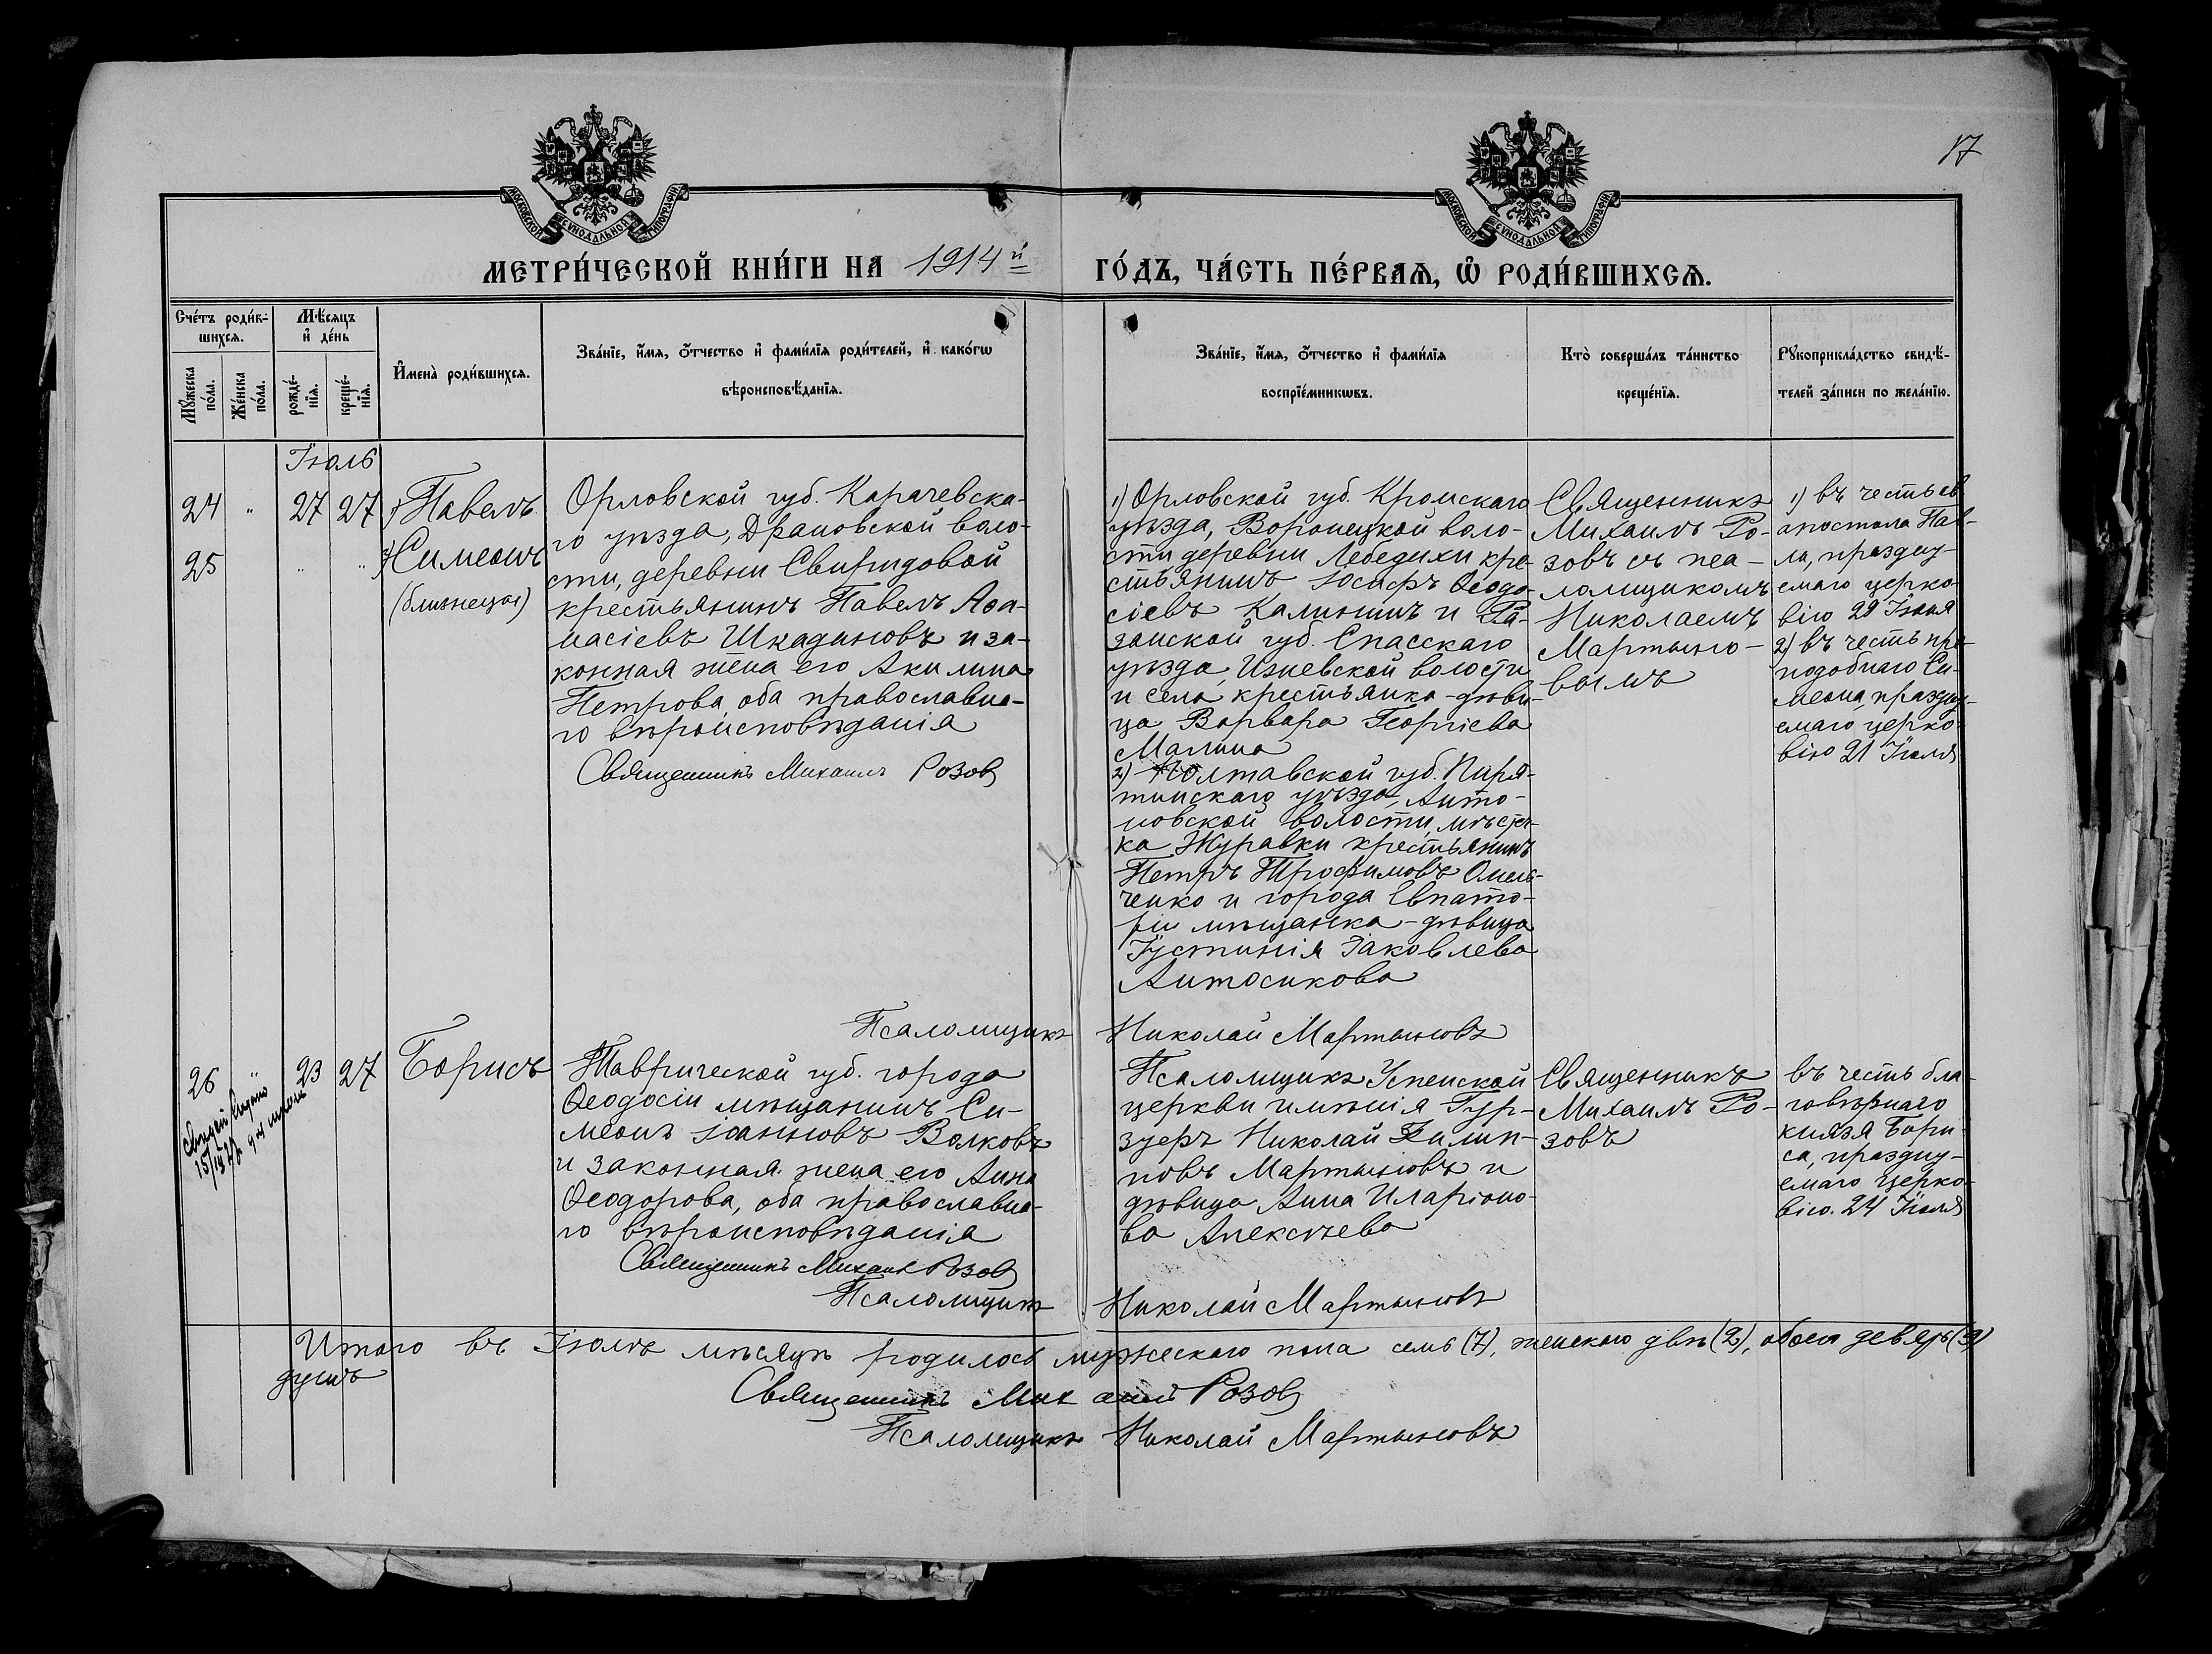 17
МОСКОВСКОЙ СѴНОДАЛЬНОЙ ТИПОГРАФІИ
МОСКОВСКОЙ СѴНОДАЛЬНОЙ ТИПОГРАФІИ
МЕТРИ́ЧЕСКОЙ КНИ́ГИ НА 1914й ГО́ДЪ, ЧА́СТЬ ПЕ́РВАѦ, Ѡ҆ РОДИ́ВШИХСѦ.
Сче́тъ роди́в-
шихсѧ.
Мꙋ́жеска
по́ла.
Же́нска
по́ла.
Мѣ́сѧцъ
и҆ де́нь
рожде́-
нїѧ.
креще́-
нїѧ.
И҆мена̀ роди́вшихсѧ.
Зва́нїе, и҆́мѧ, ѻ҆́тчество и҆ фами́лїѧ роди́телей, и҆ како́гѡ
вѣроисповѣ́данїѧ.
Зва́нїе, и҆́мѧ, ѻ҆́тчество и҆ фами́лїѧ
воспрїе́мникѡвъ.
Кто̀ соверша́лъ та́инство
креще́нїѧ.
Рꙋкоприкла́дство свидѣ́-
телей за́писи по жела́нїю.
Іюль
24 " 27 27 1) Павелъ
25 " " 2) Симеонъ
(близнецы)
Орловской губ. Карачевска-
го уѣзда, Драновской воло-
сти, деревни Свиридовой
крестьянинъ Павелъ Аѳа-
насіевъ Шкадиновъ и за-
конная жена его Акилина
Петрова, оба православна-
го вѣроисповѣданія
Священникъ Михаилъ Розов
1) Орловской губ. Кромскаго
уѣзда, Воронецкой воло-
сти деревни Лебедихи кре-
стьянинъ Іосифъ Ѳеодо-
сіевъ Калининъ и Ря-
занской губ. Спасскаго
уѣзда, Ижевской волости
и села крестьянка-дѣви-
ца Варвара Георгіева
Малина
2) Полтавской губ. Пиря-
тинскаго уѣзда, Анто-
новской волости, мѣстеч-
ка Журавки крестьянинъ
Петръ Трофимовъ Омель-
ченко и города Евпато-
ріи мѣщанка-дѣвица
Іустинія Іаковлева
Антосикова
Священникъ
Михаилъ Ро-
зовъ съ пса-
ломщикомъ
Николаемъ
Мартыно-
вымъ
1) въ честь св
апостола Пав-
ла, праздну-
емаго церко-
вію 29 Іюня
2) въ честь пре-
подобнаго Си-
меона, праздну-
емаго церко-
вію 21 Іюля
Псаломщикъ Николай Мартыновъ
26 " 23 27 Борисъ
Таврической губ. города
Ѳеодосіи мѣщанинъ Си-
меонъ Іоанновъ Волковъ
и законная жена его Анна
Ѳеодорова, оба православна-
го вѣроисповѣданія
Священникъ Михаил Розов
Псаломщикъ Успенской
церкви имѣнія Гур-
зуфъ Николай Филип-
повъ Мартыновъ и
дѣвица Анна Иларіоно-
ва Алексѣева
Священникъ
Михаилъ Ро-
зовъ
въ честь бла-
говѣрнаго
князя Бори-
са, праздну-
емаго церко-
вію 24 Іюля
Псаломщикъ Николай Мартыновъ
Итого въ Іюлѣ мѣсяцѣ родилось мужескаго пола семь (7), женскаго двѣ (2), обоего девять (9)
душъ
Священникъ Михаилъ Розов
Псаломщикъ Николай Мартыновъ